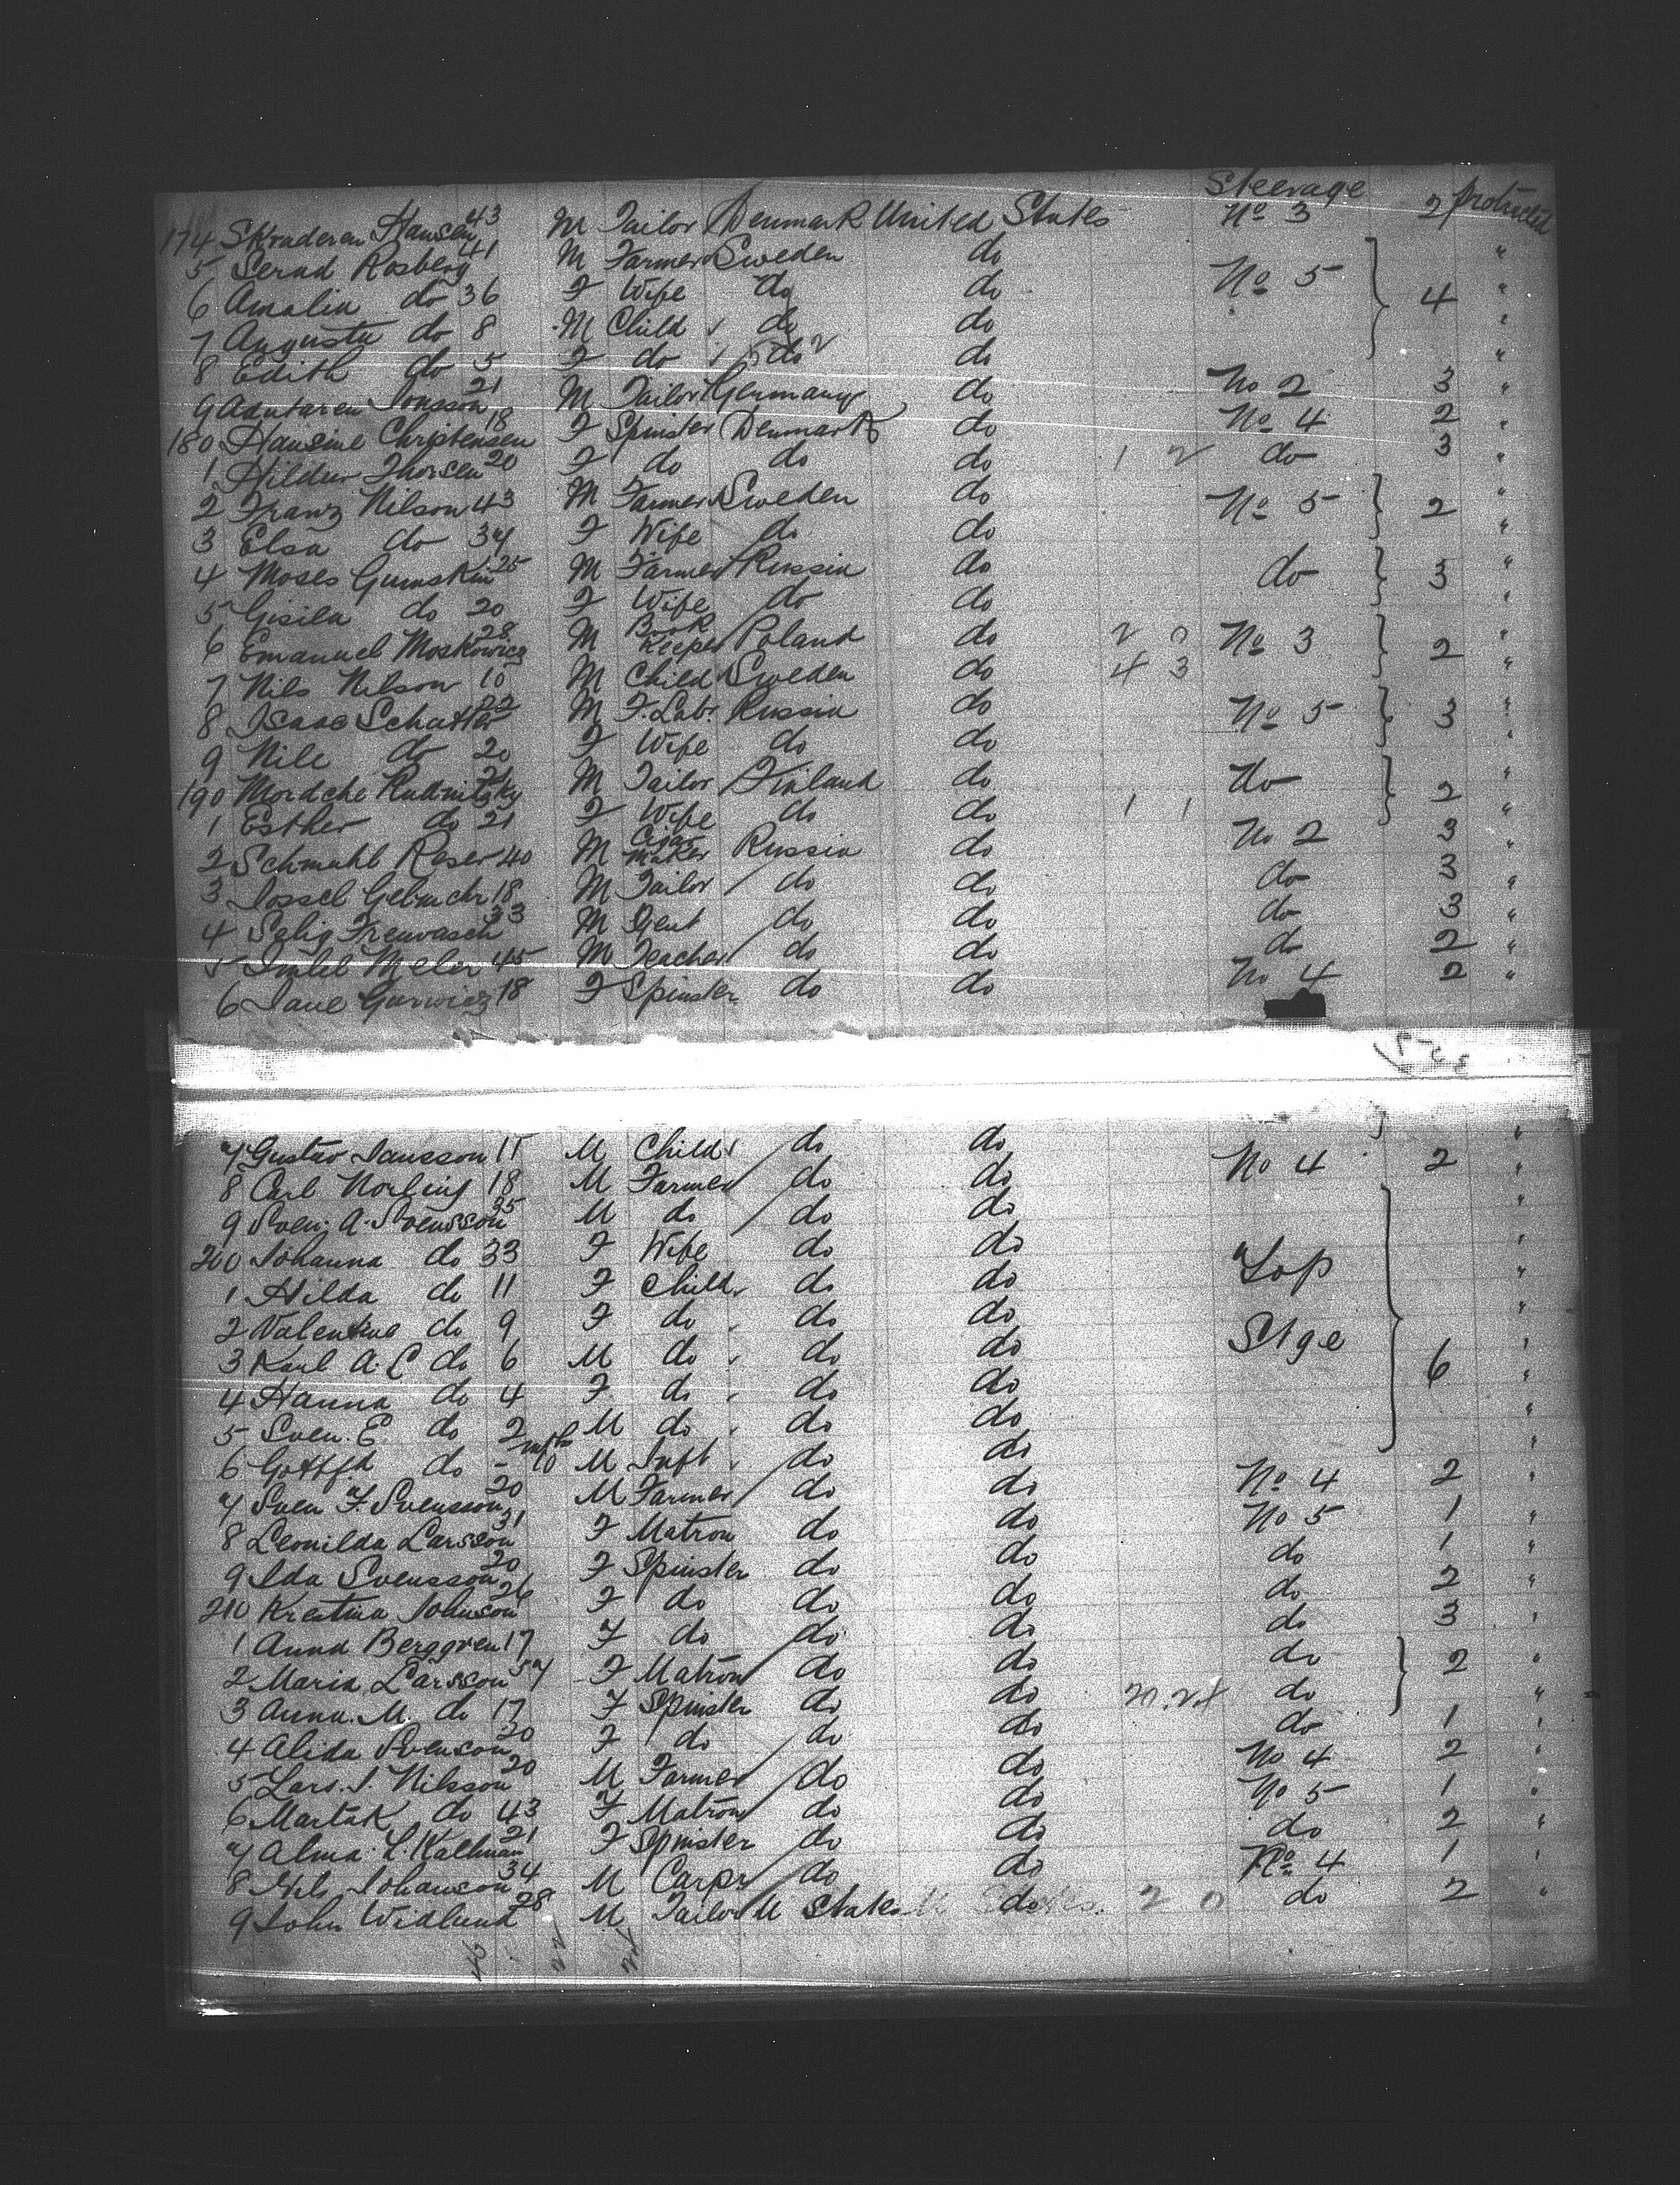 Steerage
174 Skraderen Hansen 43 M Tailor Denmark United States No 3 2 Protracted
5 Bernd Rosberg 41 M Farmer Sweden do No 5 "
6 Amalia do 36 F Wife do do 4 "
7 Augusta do 8 M Child do do "
8 Edith do 5 F do do do "
9 Jonsson 21 M Tailor Germany do No 2 3 "
180 Hansine Christensen 18 F Spinster Denmark do No 4 2 "
1 Hildur Thorsen 20 F do do do 1 2 do 3 "
2 Franz Nilson 43 M Farmer Sweden do No 5 2 "
3 Elsa do 34 F Wife do do "
4 Moses Gumskin 25 M Farmer Russia do do 3 "
5 Gisila do 20 F Wife do do "
6 Emanuel Moskowicz 28 M Book Keeper Poland do 2 0 No 3 2 "
7 Nils Nilson 10 M Child Sweden do 4 3 "
8 Isaac Schatter 22 M F. Labr. Russia do No 5 3 "
9 Nile do 20 F Wife do do "
190 Mordche Rudnitzky M Tailor Finland do do 2 "
1 Esther do 21 F Wife do do 1 1 "
2 Schmuhl Reser 40 M Cigar Maker Russia do No 2 3 "
3 Jossel 18 M Tailor do do do 3 "
4 Selig 33 M Gent do do do 3 "
5 45 M Teacher do do do 2 "
6 Jane Gurwicz 18 F Spinster do do No 4 2 "
7 Gustav Jansson 11 M Child do do "
8 Carl Norling 18 M Farmer do do No 4 2 "
9 Sven A. Svensson 35 M do do do "
200 Johanna do 33 F Wife do do Top "
1 Hilda do 11 F Child do do "
2 Valentine do 9 F do do do Stge "
3 Karl A. C do 6 M do do do 6 "
4 Hanna do 4 F do do do "
5 Sven E. do 2 M do do do "
6 Gottfd do - mths 10 M Inft do do "
7 Sven F. Svensson 20 M Farmer do do No 4 2 "
8 Leonilda Larsson 31 F Matron do do No 5 1 "
9 Ida Svensson 20 F Spinster do do do 1 "
210 Kristina Johnson 26 F do do do do 2 "
1 Anna Berggren 17 F do do do do 3 "
2 Maria Larsson 54 F Matron do do do 2 "
3 Anna. M. do 17 F Spinster do do do "
4 Alida Svenson 20 F do do do do 1 "
5 Lars. J. Nilsson 20 M Farmer do do No 4 2 "
6 do 43 F Matron do do No 5 1 "
7 Alma L. Kallman 21 F Spinster do do do 2 "
8 Nils Johanson 34 M Carpr do do No 4 1 "
9 John Widlund 28 M Tailor U States do 2 0 do 2 "